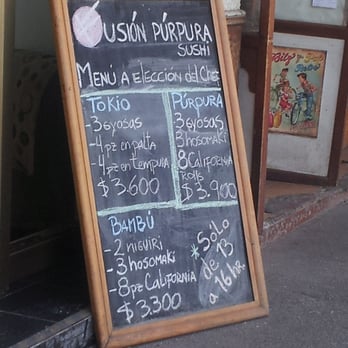 FUSIÓN PÚRPURA
SUSHI
MENÚ A ELECCIÓN del Chef
TOKIO
- 3 GYOSAS
- 4 pz en palta
- 4 pz en tempura
$ 3.600
PÚRPURA
3 GYOSAS
3 HOSOMAKI
8 California
Rolls
$ 3.900
BAMBÚ
- 2 NIGUIRI
- 3 HOSOMAKI
- 8 pz CALIFORNIA
$ 3.300
* Sólo
de 13
a 16 hr.